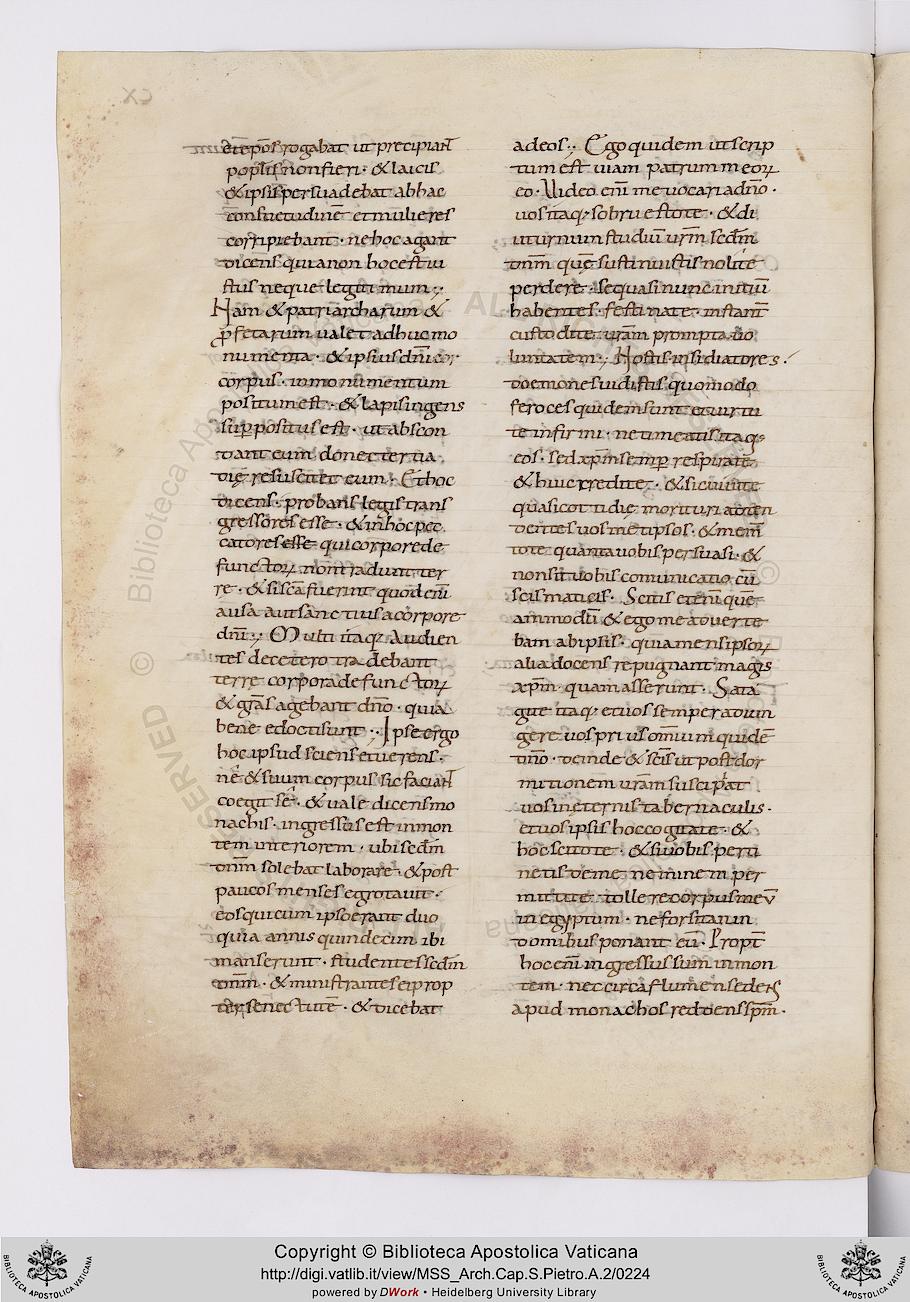 et epos rogabat ut precipiant
poplis non fieri · & laicis
& ipsis persuadebat ab hac
consuetudine et mulieres
corripiebant · ne hoc agant
dicens quia non hoc est iu
stus neque legitimum ·,
Nam & patriarcharum &
p̄fetarum ualet adhuc mo
numenta · & ipsius dn̄i
corpus · in monumentum
positum est · & lapis ingens
suppositus est · ut abscon
dant eum donec tertia
die resuscitet eum · Et hoc
dicens · probans legis trans
gressores esse · & in hoc pec
catores esse qui corpora de
functorꝝ non tradunt ter
re · & si sc̄a fuerint quod eni
ausa aut sanctius a corpore
dn̄i ·, Multi itaq; audien
tes de cetero tradebant
terre corpora defunctorꝝ
& gr̄as agebant dn̄o · quia
bene edocti sunt ·, Ipse ergo
hoc ipsud sciens et uerens ·
ne & suum corpus sic faciant
coegit se · & uale dicens mo
nachis · ingressus est in mon
tem interiorem · ubi scd̄m
dnm̄ solebat laborare · & post
paucos menses egrotauit ·
eos qui cum ipso erant duo
quia annis quindecim ibi
manserunt · studentes scd̄m
dnm̄ · & ministrantes ei prop
ter senectutē · & dicebat
ad eos ·, Ego quidem ut scrip
tum est uiam patrum meorꝝ
eo · Video eni me uocari a dn̄o ·
uos itaq; sobrii estote · & di
uturnum studiū urm̄ scd̄m
dnm̄ quę sustinuistis nolite
perdere · se quasi nunc initiū
habentes · festinate · instant
custodite uram̄ promptā uo
luntatem ·, Hostis insidiatores ·
doemones uidistis quomodo
feroces quidem sunt et uirtu
te infirmi · ne timeatis itaq;
eos · sed xp̄m semp respirate
& huic credite · & sic uiuite
quasi cottidie morituri adten
dentes uosmetipsos · & mem̄
tote quanta uobis persuasi · &
non sit uobis comunicatio cū
scismaticis · Scitis etenī quę
ammodū & ego me auerte
bam ab ipsis · quia mens ipsorꝝ
alia docens repugnant magis
xp̄m · quam asserunt · Sata
gite itaq; et uos semper adiun
gere uos prius omnium quidē
dn̄o · deinde & sc̄is ut post dor
mitionem uram̄ suscipiat
uos in eternis tabernaculis ·
et uos ipsis hoc cogitate · &
hoc scitote · & si uobis perti
netis de me neminem per
mittite tolle re corpus meū
in egyptum · ne forsitan in
domibus ponant eū · Propt
hoc eni ingressus sum in mon
tem · nec circa flumen sedens
apud monachos reddens spm̄ ·
Copyright © Biblioteca Apostolica Vaticana
http://digi.vatlib.it/view/MSS_Arch.Cap.S.Pietro.A.2/0224
powered by DWork • Heidelberg University Library